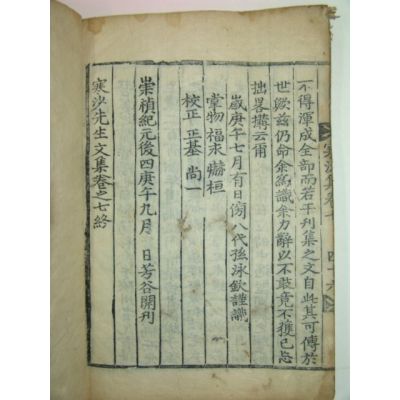 不得渾成全部而若平刋集之文自此其可傳於
世歟玆仍命余爲識余力辭以不敢竟不獲已忘
拙畧搆云爾
歲庚午七月有日傍八代孫泳欽謹識
掌物福永 爀桓
校正 正基 尚一
崇禎紀元後四庚午九月 日芳谷開刋
寒沙先生文集卷之七終
寒沙集卷七 四十六